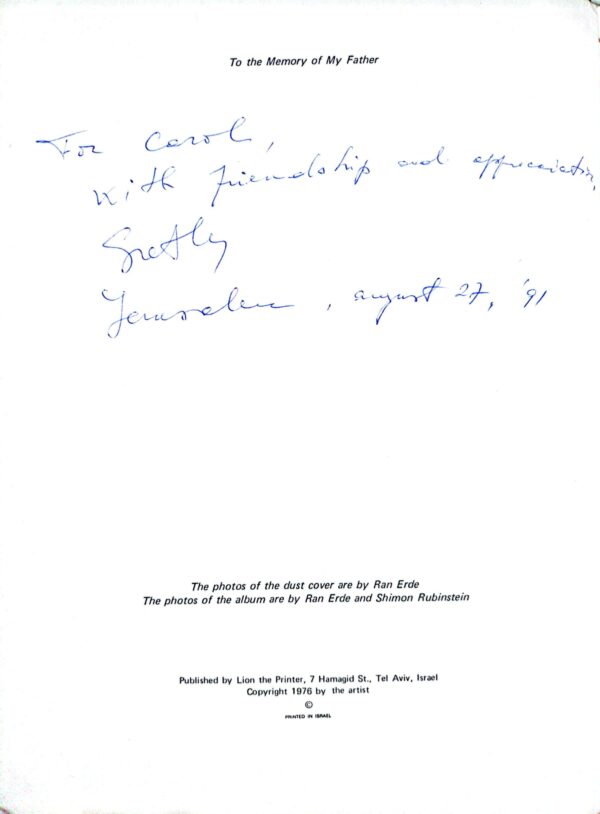 To the Memory of My Father
For Carol,
With friendship and appreciation,
Jerusalem, august 27, '91
The photos of the dust cover are by Ran Erde
The photos of the album are by Ran Erde and Shimon Rubinstein
Published by Lion the Printer, 7 Hamagid St., Tel Aviv, Israel
Copyright 1976 by the artist
©
PRINTED IN ISRAEL